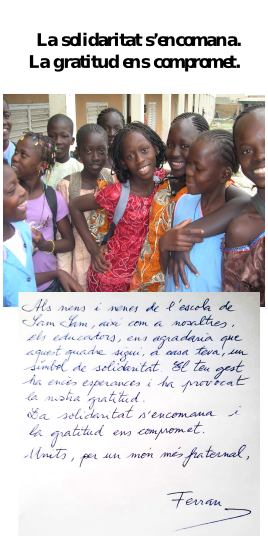 La solidaritat s'encomana.
La gratitud ens compromet.
Als nens i nenes de l'escola de
Sam Sam, així com a nosaltres,
els educadors, ens agradaria que
aquest quadre sigui, a casa teva, un
símbol de solidaritat. El teu gest
ha encès esperances i ha provocat
la nostra gratitud.
La solidaritat s'encomana i
la gratitud ens compromet.
Units, per un món més fraternal,
Ferran